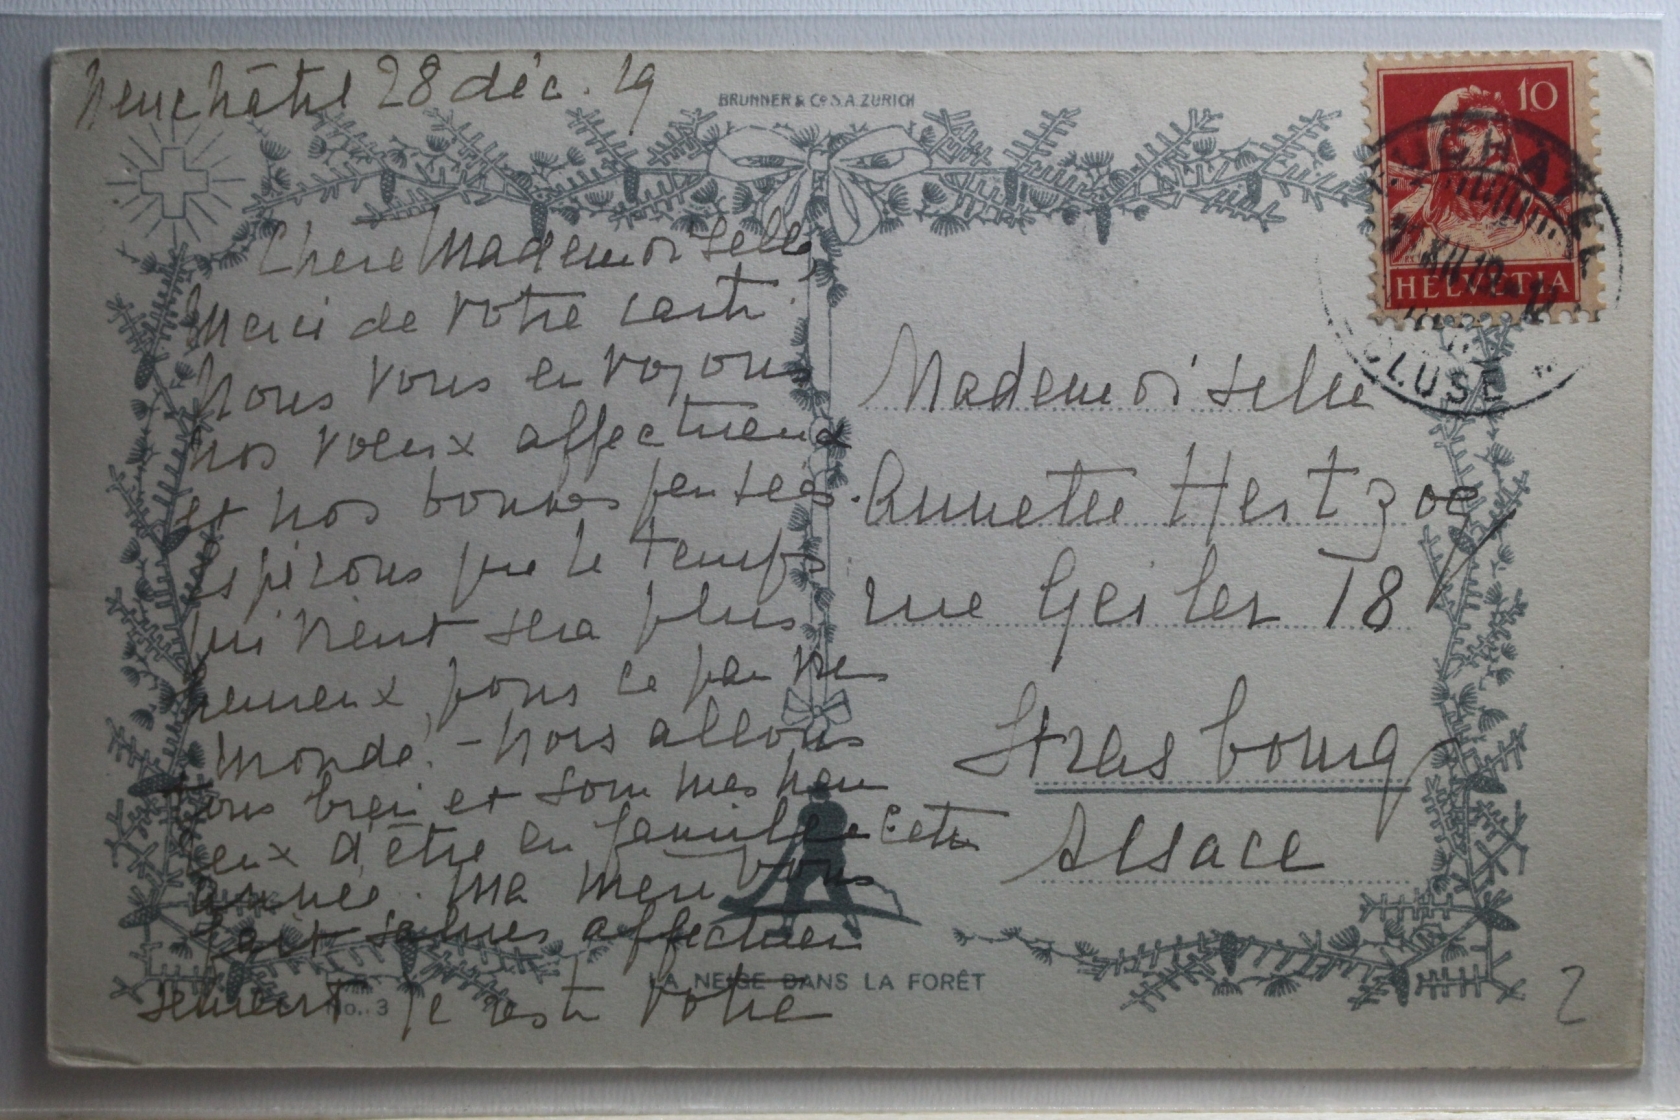 Neuchâtel 28 déc. 19
BRUNNER & Co S.A. ZURICH
10
HELVETIA
NEUCHATEL
XII 19
ECLUSE
Chère Mademoiselle,
Merci de votre carte.
Nous vous envoyons
nos voeux affectueux
et nos bonnes pensées.
Espérons que le temps
qui vient sera plus
heureux pour ce pauvre
monde. - Nous allons
tous bien et sommes heu
reux d'être en famille cette
année. Ma mère vous
fait salues affectueu
sement je reste votre
Mademoiselle
Annette Hertzog
rue Geiler 18
Strasbourg
Alsace
LA NEIGE DANS LA FORÊT
No. 3
2